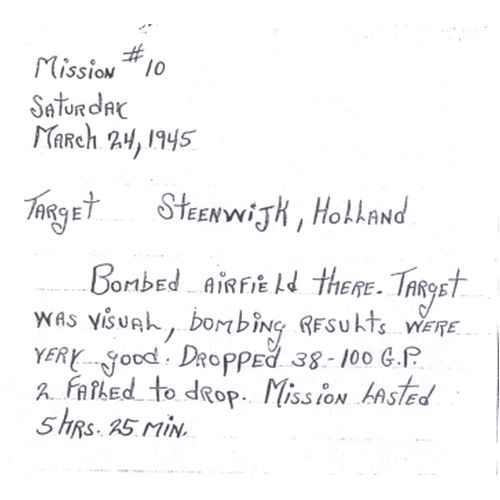 Mission #10
Saturday
March 24, 1945
Target Steenwijk, Holland
Bombed airfield there. Target
was visual, bombing results were
very good. Dropped 38-100 G.P.
2 failed to drop. Mission lasted
5 hrs. 25 min.